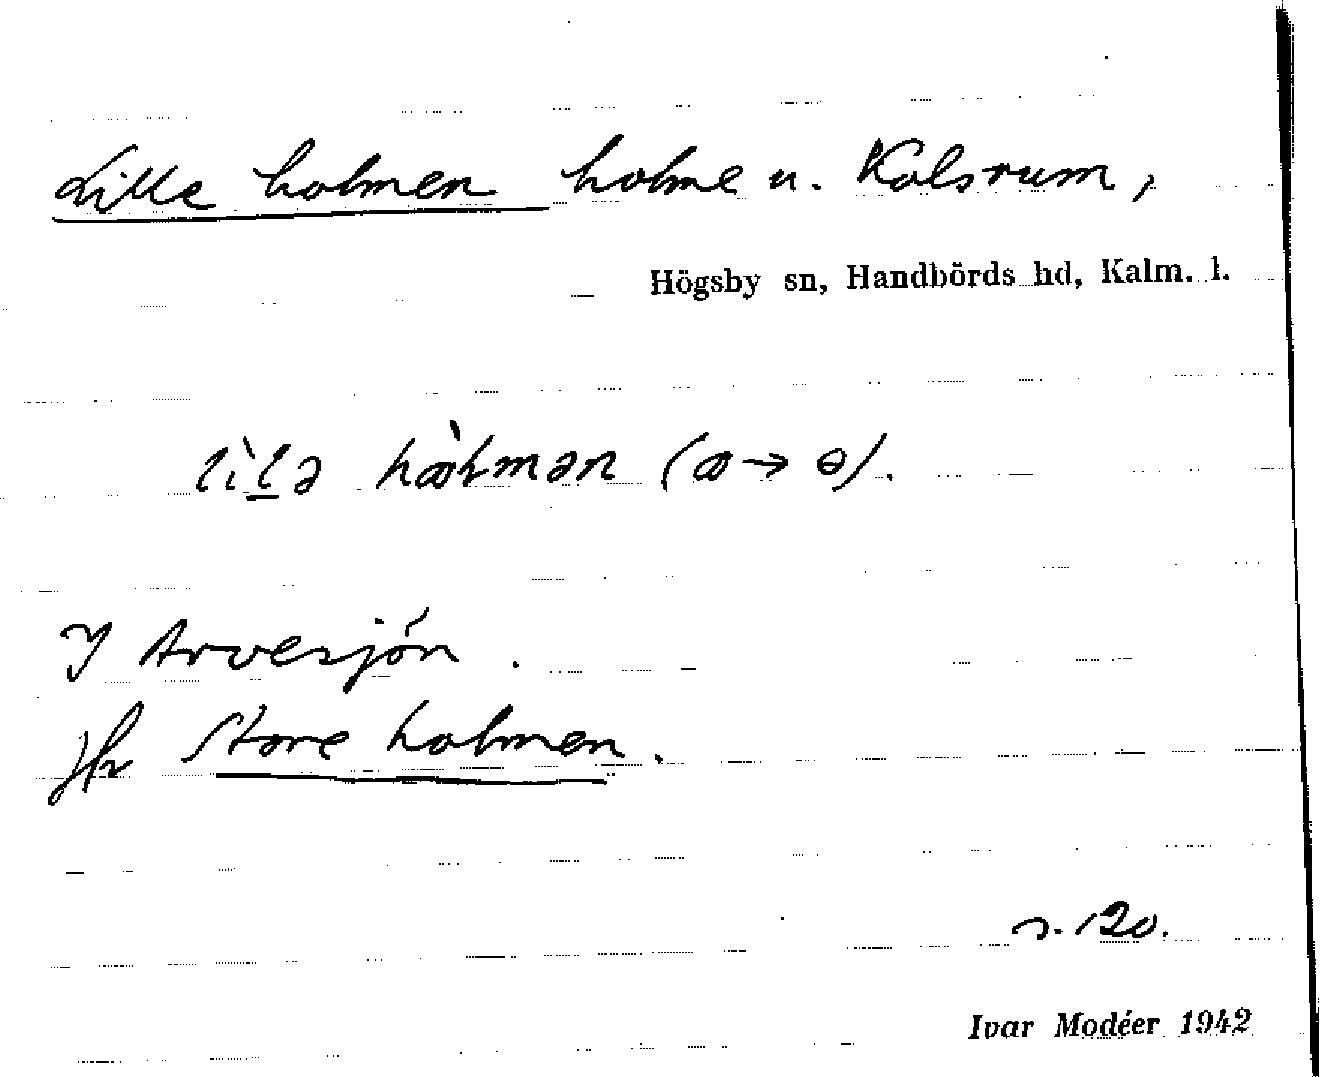 Lille holmen holme u. Kalsrum,
Högsby sn, Handbörds hd, Kalm. l.
lìlə hòlmən (ꝏ → ɵ).
I Arvesjön.
Jfr Store holmen.
s. 120.
Ivar Modéer 1942